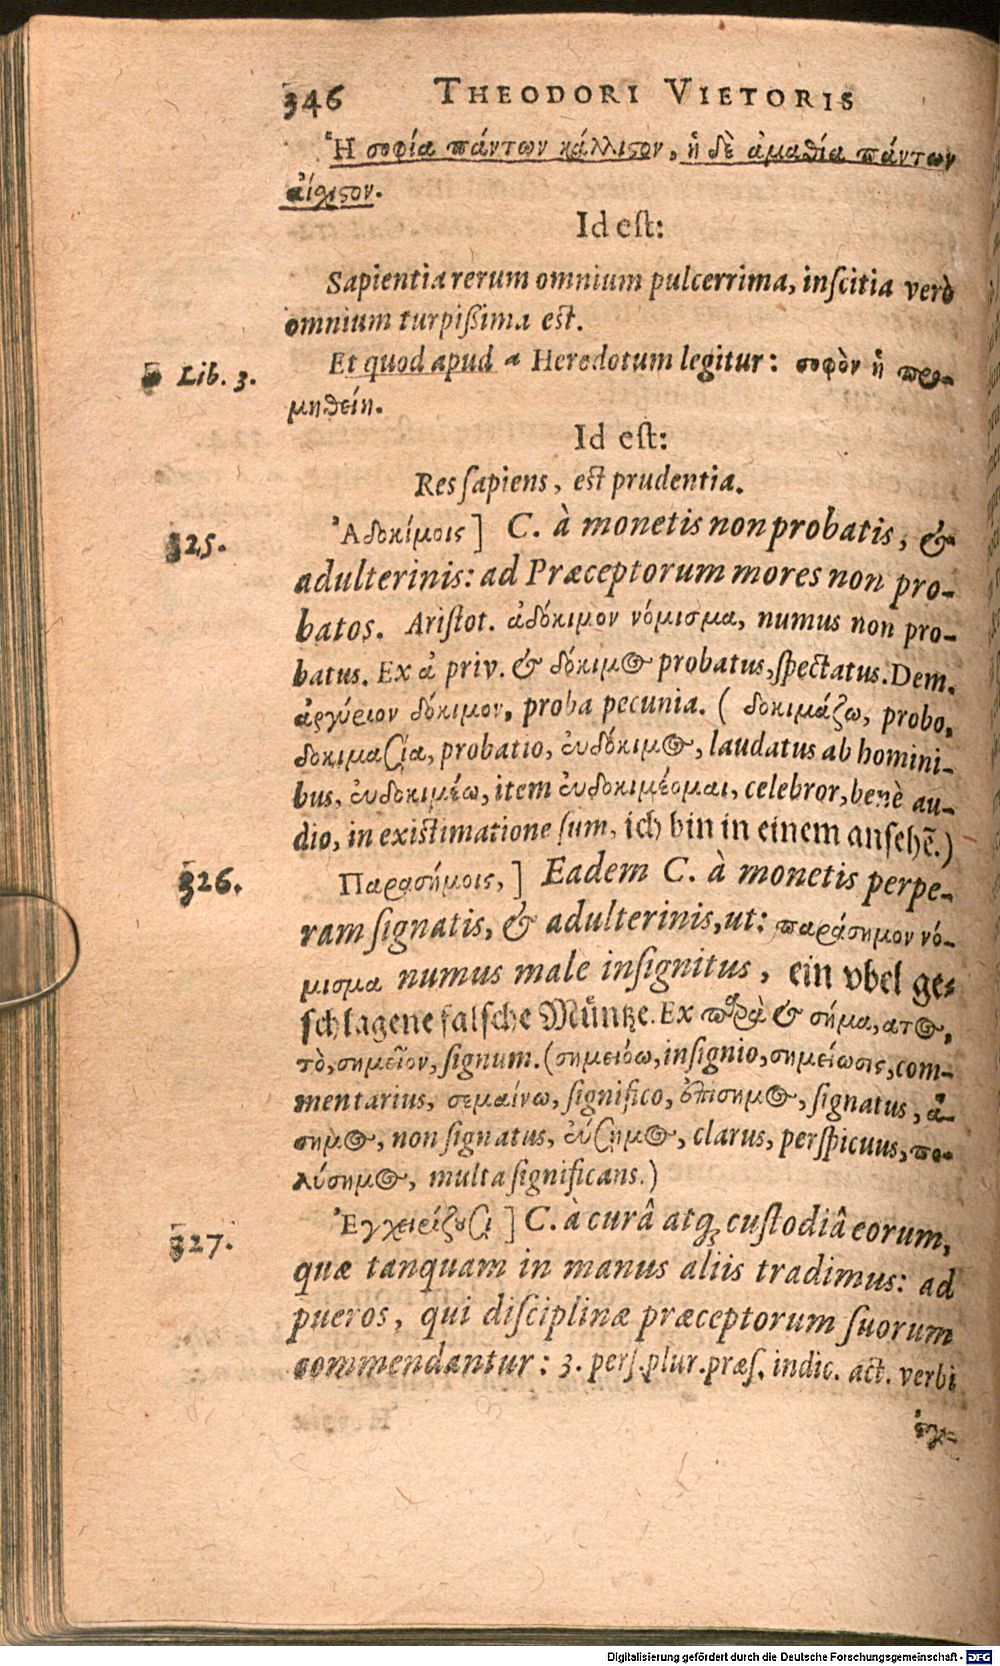 346 THEODORI VIETORIS
Ἡ σοφία πάντων κάλλιϛον, ἡ δὲ ἀμαθία πάντων
αἴχιϛον.
Id eſt:
Sapientia rerum omnium pulcerrima, inſcitia verò
omnium turpißima est.
Lib. 3. Et quod apud a Herodotum legitur: σοφὸν ἡ προ-
μηθείη.
Id eſt:
Res ſapiens, est prudentia.
325. Ἀδοκίμοις] C. à monetis non probatis, &
adulterinis: ad Præceptorum mores non pro-
batos. Ariſtot. ἀδόκιμον νόμισμα, numus non pro-
batus. Ex ἀ priv. & δόκιμ⊙ probatus, ſpectatus. Dem.
ἀργύριον δόκιμον, proba pecunia. ( δοκιμάζω, probo,
δοκιμασία, probatio, εὐδόκιμ⊙, laudatus ab homini-
bus, εὐδοκιμέω, item εὐδοκιμέομαι, celebror, benè au-
dio, in existimatione ſum, ich bin in einem anſehẽ.)
326. Παρασήμοις,] Eadem C. à monetis perpe-
ram ſignatis, & adulterinis, ut: παράσημον νό-
μισμα numus male inſignitus, ein vbel ge-
ſchlagene falſche Müntze. Ex παρὰ & σήμα, ατ⊙,
τὸ, σημεῖον, ſignum. (σημειόω, inſignio, σημείωσις, com-
mentarius, σεμαίνω, ſignifico, ἐπίσημ⊙, ſignatus, ἄ-
σημ⊙, non ſignatus, εὔσημ⊙, clarus, perſpicuus, πο-
λύσημ⊙, multa ſignificans.)
327. Ἐγχειρίζουσι] C. à curâ atq; cuſtodiâ eorum,
quæ tanquam in manus aliis tradimus: ad
pueros, qui diſciplinæ præceptorum ſuorum
commendantur: 3. perſ. plur. præſ. indic. act. verbi
ἐγ-
Digitalisierung gefördert durch die Deutsche Forschungsgemeinschaft - DFG